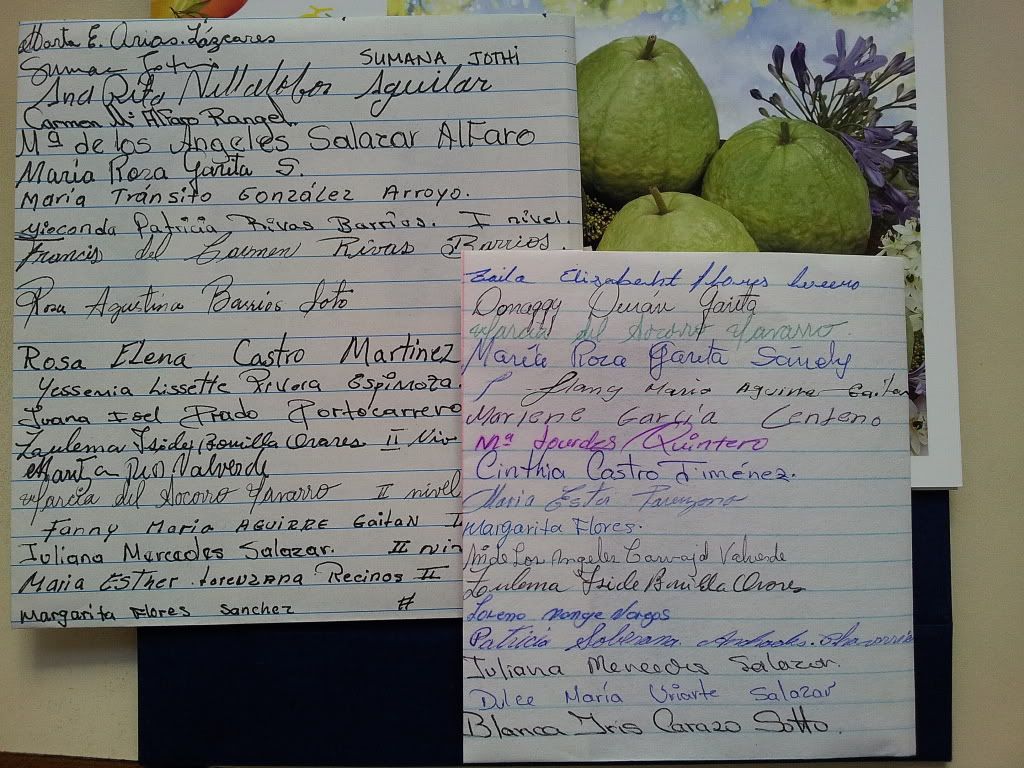 Marta E. Arias. Lázcares
SUMANA JOTHI
Ana Rita Villalobos Aguilar
Carmen Mª Alfaro Rangel.
Mª de los Angeles Salazar Alfaro
María Rosa Garita S.
María Tránsito González Arroyo.
Gioconda Patricia Rivas Barrios. I nivel.
Francis del Carmen Rivas Barrios.
Rosa Agustina Barrios Soto
Rosa Elena Castro Martinez
Yessenia Lissette Rivera Espinoza.
Juana Isel Prado Portocarrero
Zaulema Iside Bonilla Orares II Niv
Maritza Valverde
Marcia del Socorro Navarro II nivel
Fanny María AGUIRRE Gaitan I
Iuliana Mercedes Salazar. II niv
Maria Esther Lorenzana Recinos II
Margarita Flores Sanchez #
Zaila Elizabeht flores lucero
Donaggy Durán Garita
Marcia del Socorro Navarro.
María Rosa Garita Sandy
María Aguirre Gaitan
Marlene García Centeno
Mª Lourdes Quintero
Cinthia Castro Jiménez.
Maria Ester
Margarita Flores.
de Los Angeles Carvajal Valverde
Zulema Iside Bonilla Orores
Loreno monge Vargas
Patricia Soberana
Iuliana Mercedes Salazar.
Dulce María Uriarte Salazar
Blanca Iris Carazo Sotto.